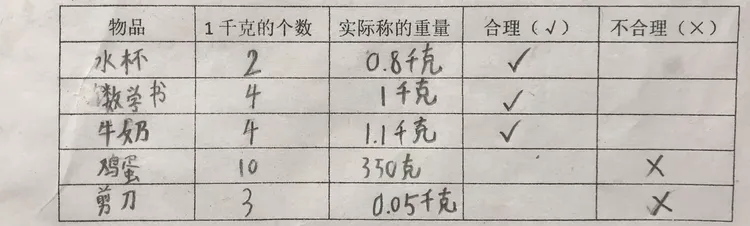 物品 1千克的个数 实际称的重量 合理（√） 不合理（×）
水杯 2 0.8千克 √
数学书 4 1千克 √
牛奶 4 1.1千克 √
鸡蛋 10 350克 ×
剪刀 3 0.05千克 ×